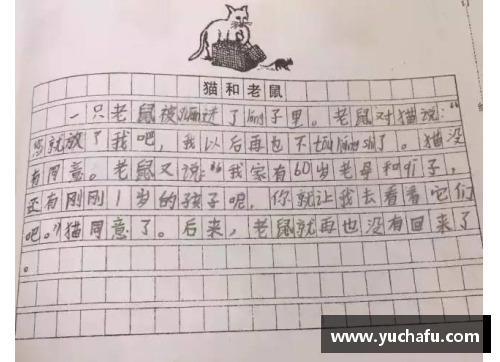 猫和老鼠
一只老鼠被逼进了lóng子里。老鼠对猫说:“
您就放了我吧,我以后再也不tōu liáng shí了。猫没
有同意。老鼠又说:“我家有60岁老母和qī子,
还有刚刚1岁的孩子呢,你就让我去看看它们
吧。”猫同意了。后来,老鼠就再也没有回来了
。
www.yuchafu.com